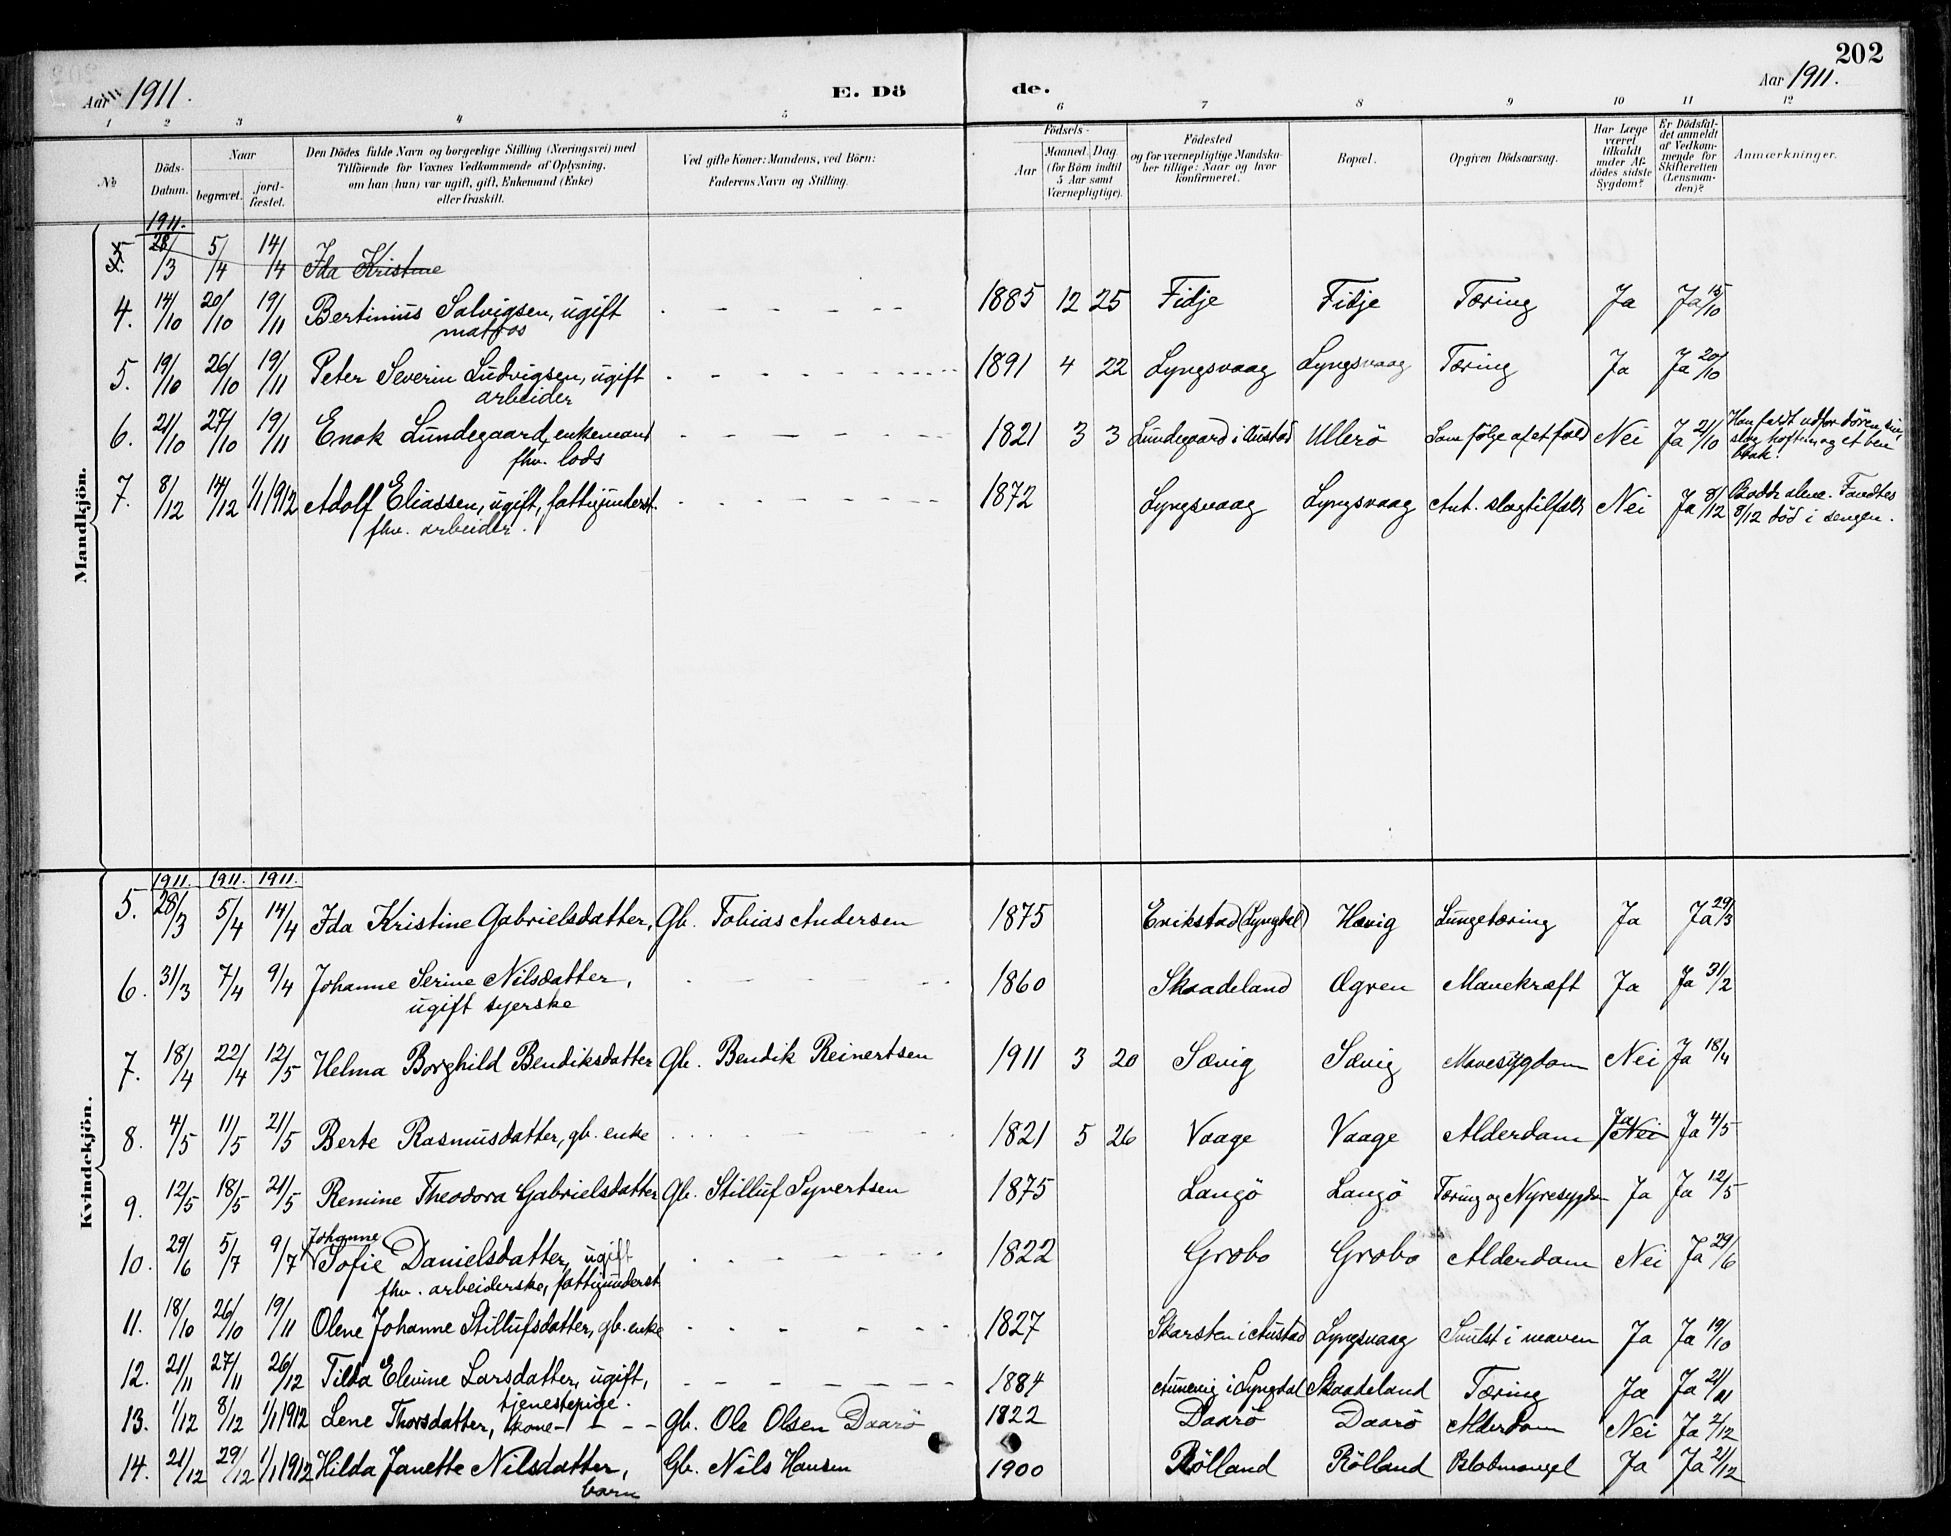 202
Aar 1911.
E. Dö
de.
Aar 1911.
1 2 3 4 5 6 7 8 9 10 11 12
No
Döds-Datum.
Naar
begravet.
jord-fæstet.
Den Dödes fulde Navn og borgerlige Stilling (Næringsvei) med
Tilföiende for Voxnes Vedkommende af Oplysning,
om han (hun) var ugift, gift, Enkemand (Enke)
eller fraskilt.
Ved gifte Koner: Mandens, ved Börn:
Faderens Navn og Stilling.
Födsels-
Aar
Maaned. Dag
(for Börn indtil
5 Aar samt
Værnepligtige).
Födested
og for værnepligtige Mandska-
ber tillige: Naar og hvor
konfirmeret.
Bopæl.
Opgiven Dödsaarsag.
Har Læge
været
tilkaldt
under Af-
dödes sidste
Sygdom?
Er Dödsfal-
det anmeldt
af Vedkom-
mende for
Skifteretten
(Lensman-
den)?
Anmærkninger.
Mandkjön.
1911.
5. 28/3 5/4 14/4 Ida Kristine
4. 14/10 20/10 19/11 Bertinius Salvigsen, ugift 1885 12 25 Fidje Fidje Tæring Ja Ja 15/10
matros
5. 19/10 26/10 19/11 Peter Severin Ludvigsen, ugift 1891 4 22 Lyngsvaag Lyngsvaag Tæring Ja Ja 20/10
arbeider
6. 21/10 27/10 19/11 Enok Lundegaard, enkemand 1821 3 3 Lundegaard i Austad Ullerö Som følge af et fald Nei Ja 21/10 Han faldt udfor dören sin,
fhv. lods
slog hoften og et ben
brak.
7. 8/12 14/12 1/1 1912 Adolf Eliassen, ugift, fattigunderst. 1872 Lyngsvaag Lyngsvaag Ant. slagtilfælde Nei Ja 8/12 Bodde alene. Fandtes
fhv. arbeider.
8/12 död i sengen.
Kvindekjön.
1911. 1911. 1911.
5. 28/3 5/4 14/4 Ida Kristine Gabrielsdatter, Gb. Tobias Andersen 1875 Erikstad (Lyngdal) Hævig Lungetæring Ja Ja 29/3
6. 31/3 7/4 9/4 Johanne Serine Nilsdatter, 1860 Skaadeland Øgren Mavekræft Ja Ja 31/2
ugift syerske
7. 18/4 22/4 12/5 Helma Borghild Bendiksdatter Gb. Bendik Reinertsen 1911 3 20 Sævig Sævig Mavesygdom Nei Ja 18/4
8. 4/5 11/5 21/5 Berte Rasmusdatter, gb. enke 1821 5 26 Vaage Vaage Alderdom Ja Nei Ja 4/5
9. 12/5 18/5 21/5 Remine Theodora Gabrielsdatter Gb. Stilluf Syvertsen 1875 Langö Langö Tæring og Nyresygdom Ja Ja 12/5
Johanne
10. 29/6 5/7 9/7 Sofie Danielsdatter, ugift 1822 Grobo Grobo Alderdom Nei Ja 29/6
fhv. arbeiderske, fattigunderst
11. 18/10 26/10 19/11 Olene Johanne Stillufsdatter, gb. enke 1827 Skarsten i Austad Lyngsvaag Svulst i maven Ja Ja 19/10
12. 21/11 27/11 26/12 Tilda Elevine Larsdatter, ugift, 1884 Aunevig i Lyngdal Skaadeland Tæring Ja Ja 21/11
tjenestepige.
13. 1/12 8/12 1/1 1912 Lene Thorsdatter, kone Gb. Ole Olsen Daarö 1822 Daarö Daarö Alderdom Nei Ja 2/12
14. 21/12 29/12 1/1 1912 Hilda Janette Nilsdatter, Gb. Nils Hansen 1900 Rölland Rölland Blodmangel Ja Ja 21/12
barn